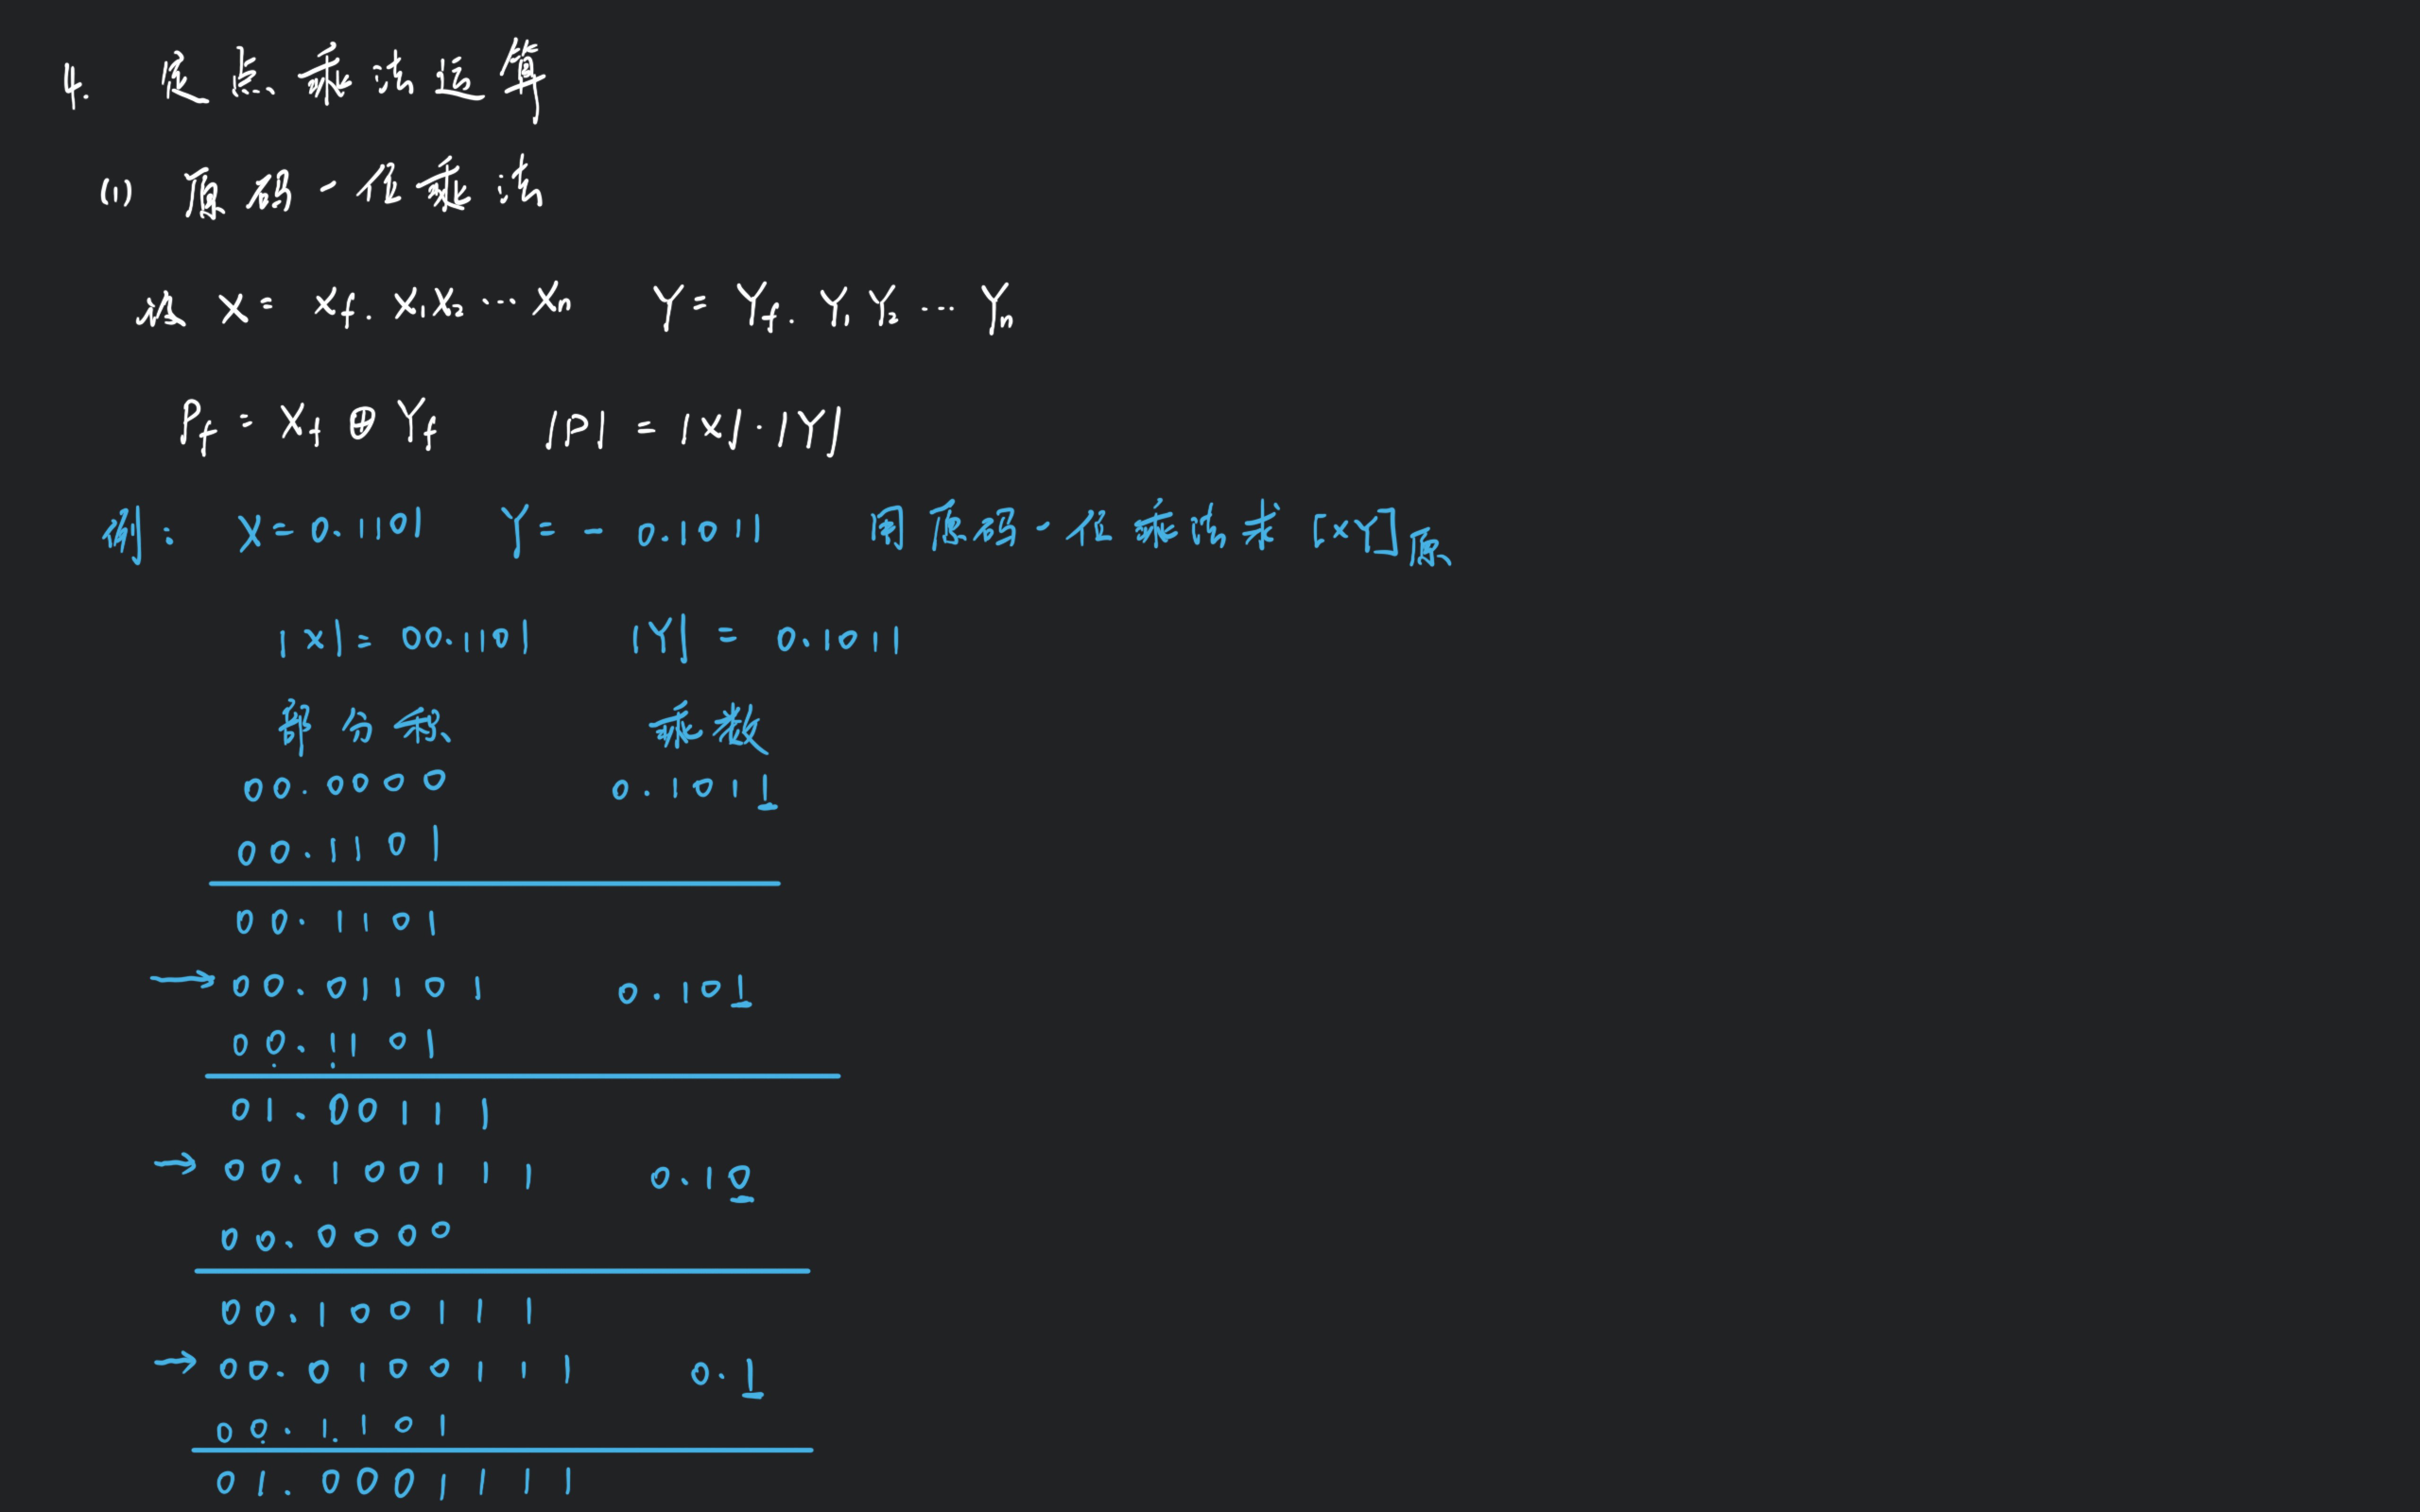 4. 定点乘法运算
(1) 原码一位乘法
设 X = Xf. X₁X₂ ··· Xn Y = Yf. Y₁Y₂ ··· Yn
Pf = Xf ⊕ Yf |P| = |X|·|Y|
例: X = 0.1101 Y = - 0.1011 用原码一位乘法求 [XY]原
|X| = 00.1101 |Y| = 0.1011
部分积 乘数
00.0000 0.1011
00.1101
00.1101
→ 00.01101 0.101
00.1101
01.00111
→ 00.100111 0.10
00.0000
00.100111
→ 00.0100111 0.1
00.1101
01.0001111